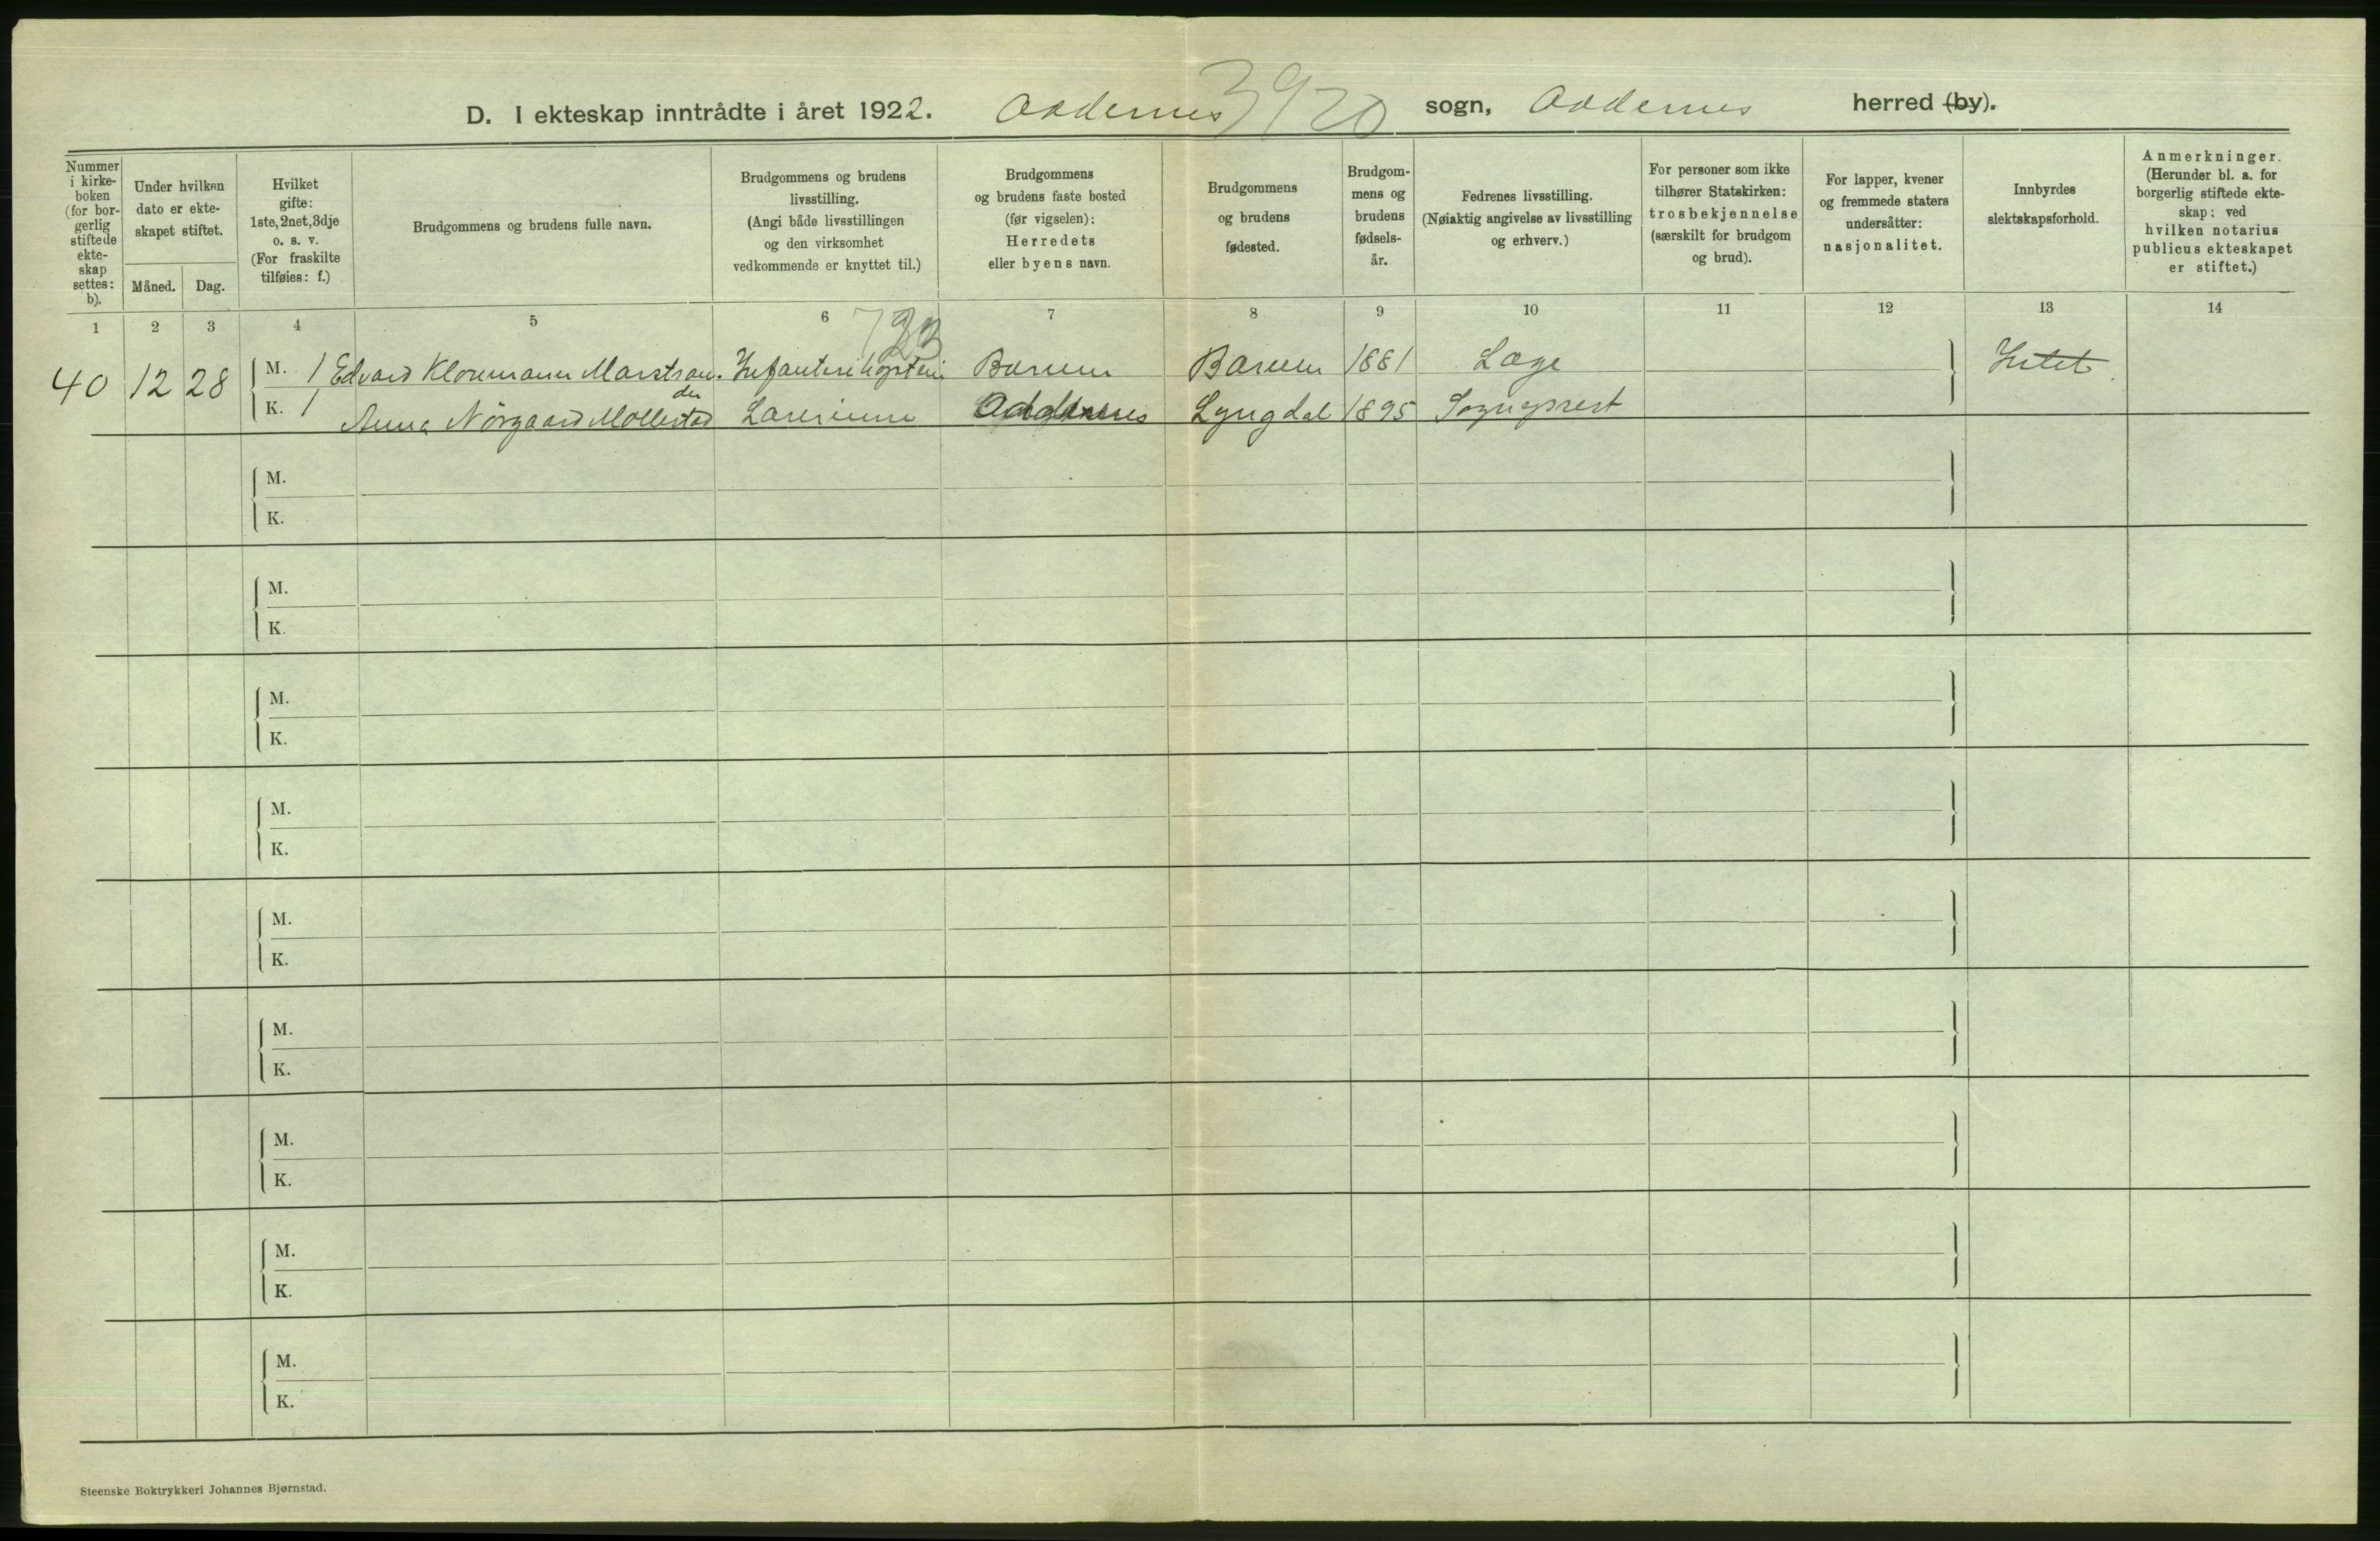 D. I ekteskap inntrådte i året 1922. Oddernes 3920 sogn, Oddernes herred (by).
Nummer i kirkeboken (for borgerlig stiftede ekteskap settes: b).
Under hvilken dato er ekteskapet stiftet.
Måned. Dag.
Hvilket gifte: 1ste, 2net, 3dje o. s. v. (For fraskilte tilføies: f.)
Brudgommens og brudens fulle navn.
Brudgommens og brudens livsstilling. (Angi både livsstillingen og den virksomhet vedkommende er knyttet til.)
Brudgommens og brudens faste bosted (før vigselen): Herredets eller byens navn.
Brudgommens og brudens fødested.
Brudgommens og brudens fødselsår.
Fedrenes livsstilling. (Nøiaktig angivelse av livsstilling og erhverv.)
For personer som ikke tilhører Statskirken: trosbekjennelse (særskilt for brudgom og brud).
For lapper, kvener og fremmede staters undersåtter: nasjonalitet.
Innbyrdes slektskapsforhold.
Anmerkninger. (Herunder bl. a. for borgerlig stiftede ekteskap: ved hvilken notarius publicus ekteskapet er stiftet.)
1 2 3 4 5 6 7 8 9 10 11 12 13 14
40 12 28 M. 1 Edvard Klouman Marstrander Infanterikaptein Bærum Bærum 1881 Læge Intet
K. 1 Anna Nørgaard Møllerstad Lærerinne Oddernes Lyngdal 1895 Sogneprest
M.
K.
M.
K.
M.
K.
M.
K.
M.
K.
M.
K.
M.
K.
M.
K.
M.
K.
Steenske Boktrykkeri Johannes Bjørnstad.